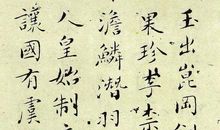 玉出崑岡
果珍李柰
澹鱗潛羽
人皇始制
讓國有虞